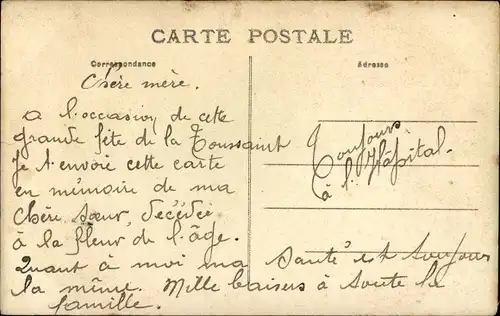 CARTE POSTALE
Correspondance
Adresse
Chère mère.
A l'occasion de cette
grande fête de la Toussaint
Je t'envoie cette carte
en mémoire de ma
Chère sœur, décédée
à la fleur de l'âge.
Quant à moi ma santé est toujours
la même. Mille baisers à toute la
famille.
Toujours
à l'Hôpital.